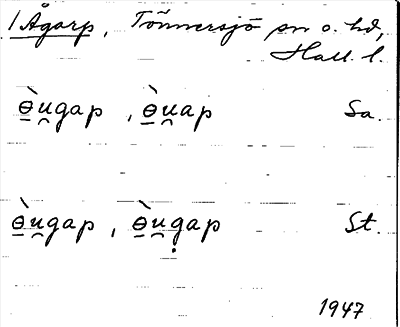 1 Ågarp, Tönnersjö sn o. hd,
Hall. l.
ɵ̠̀u̯gap , ɵ̠̀u̯ap Sa.
ɵ̠̀u̯gap , ɵ̠̀u̯g̣ap St.
1947